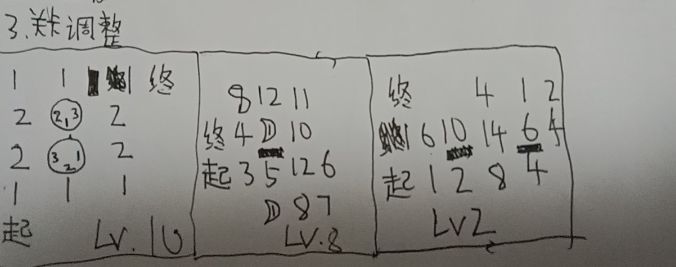 3.关卡调整
1 1 1 终
2 2,3 2
2 3,2,1 2
1 1 1
起 LV.10
8 12 11
终 4 D 10
起 3 5 12 6
D 8 7
LV.8
终 4 1 2
6 10 14 6 4
起 1 2 8 4
LV2